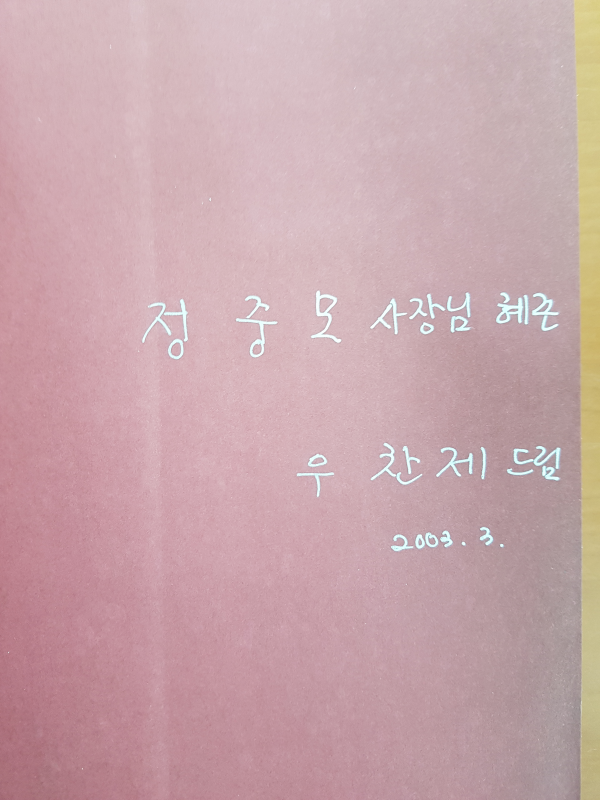 정중모 사장님 혜존
우찬제 드림
2003. 3.